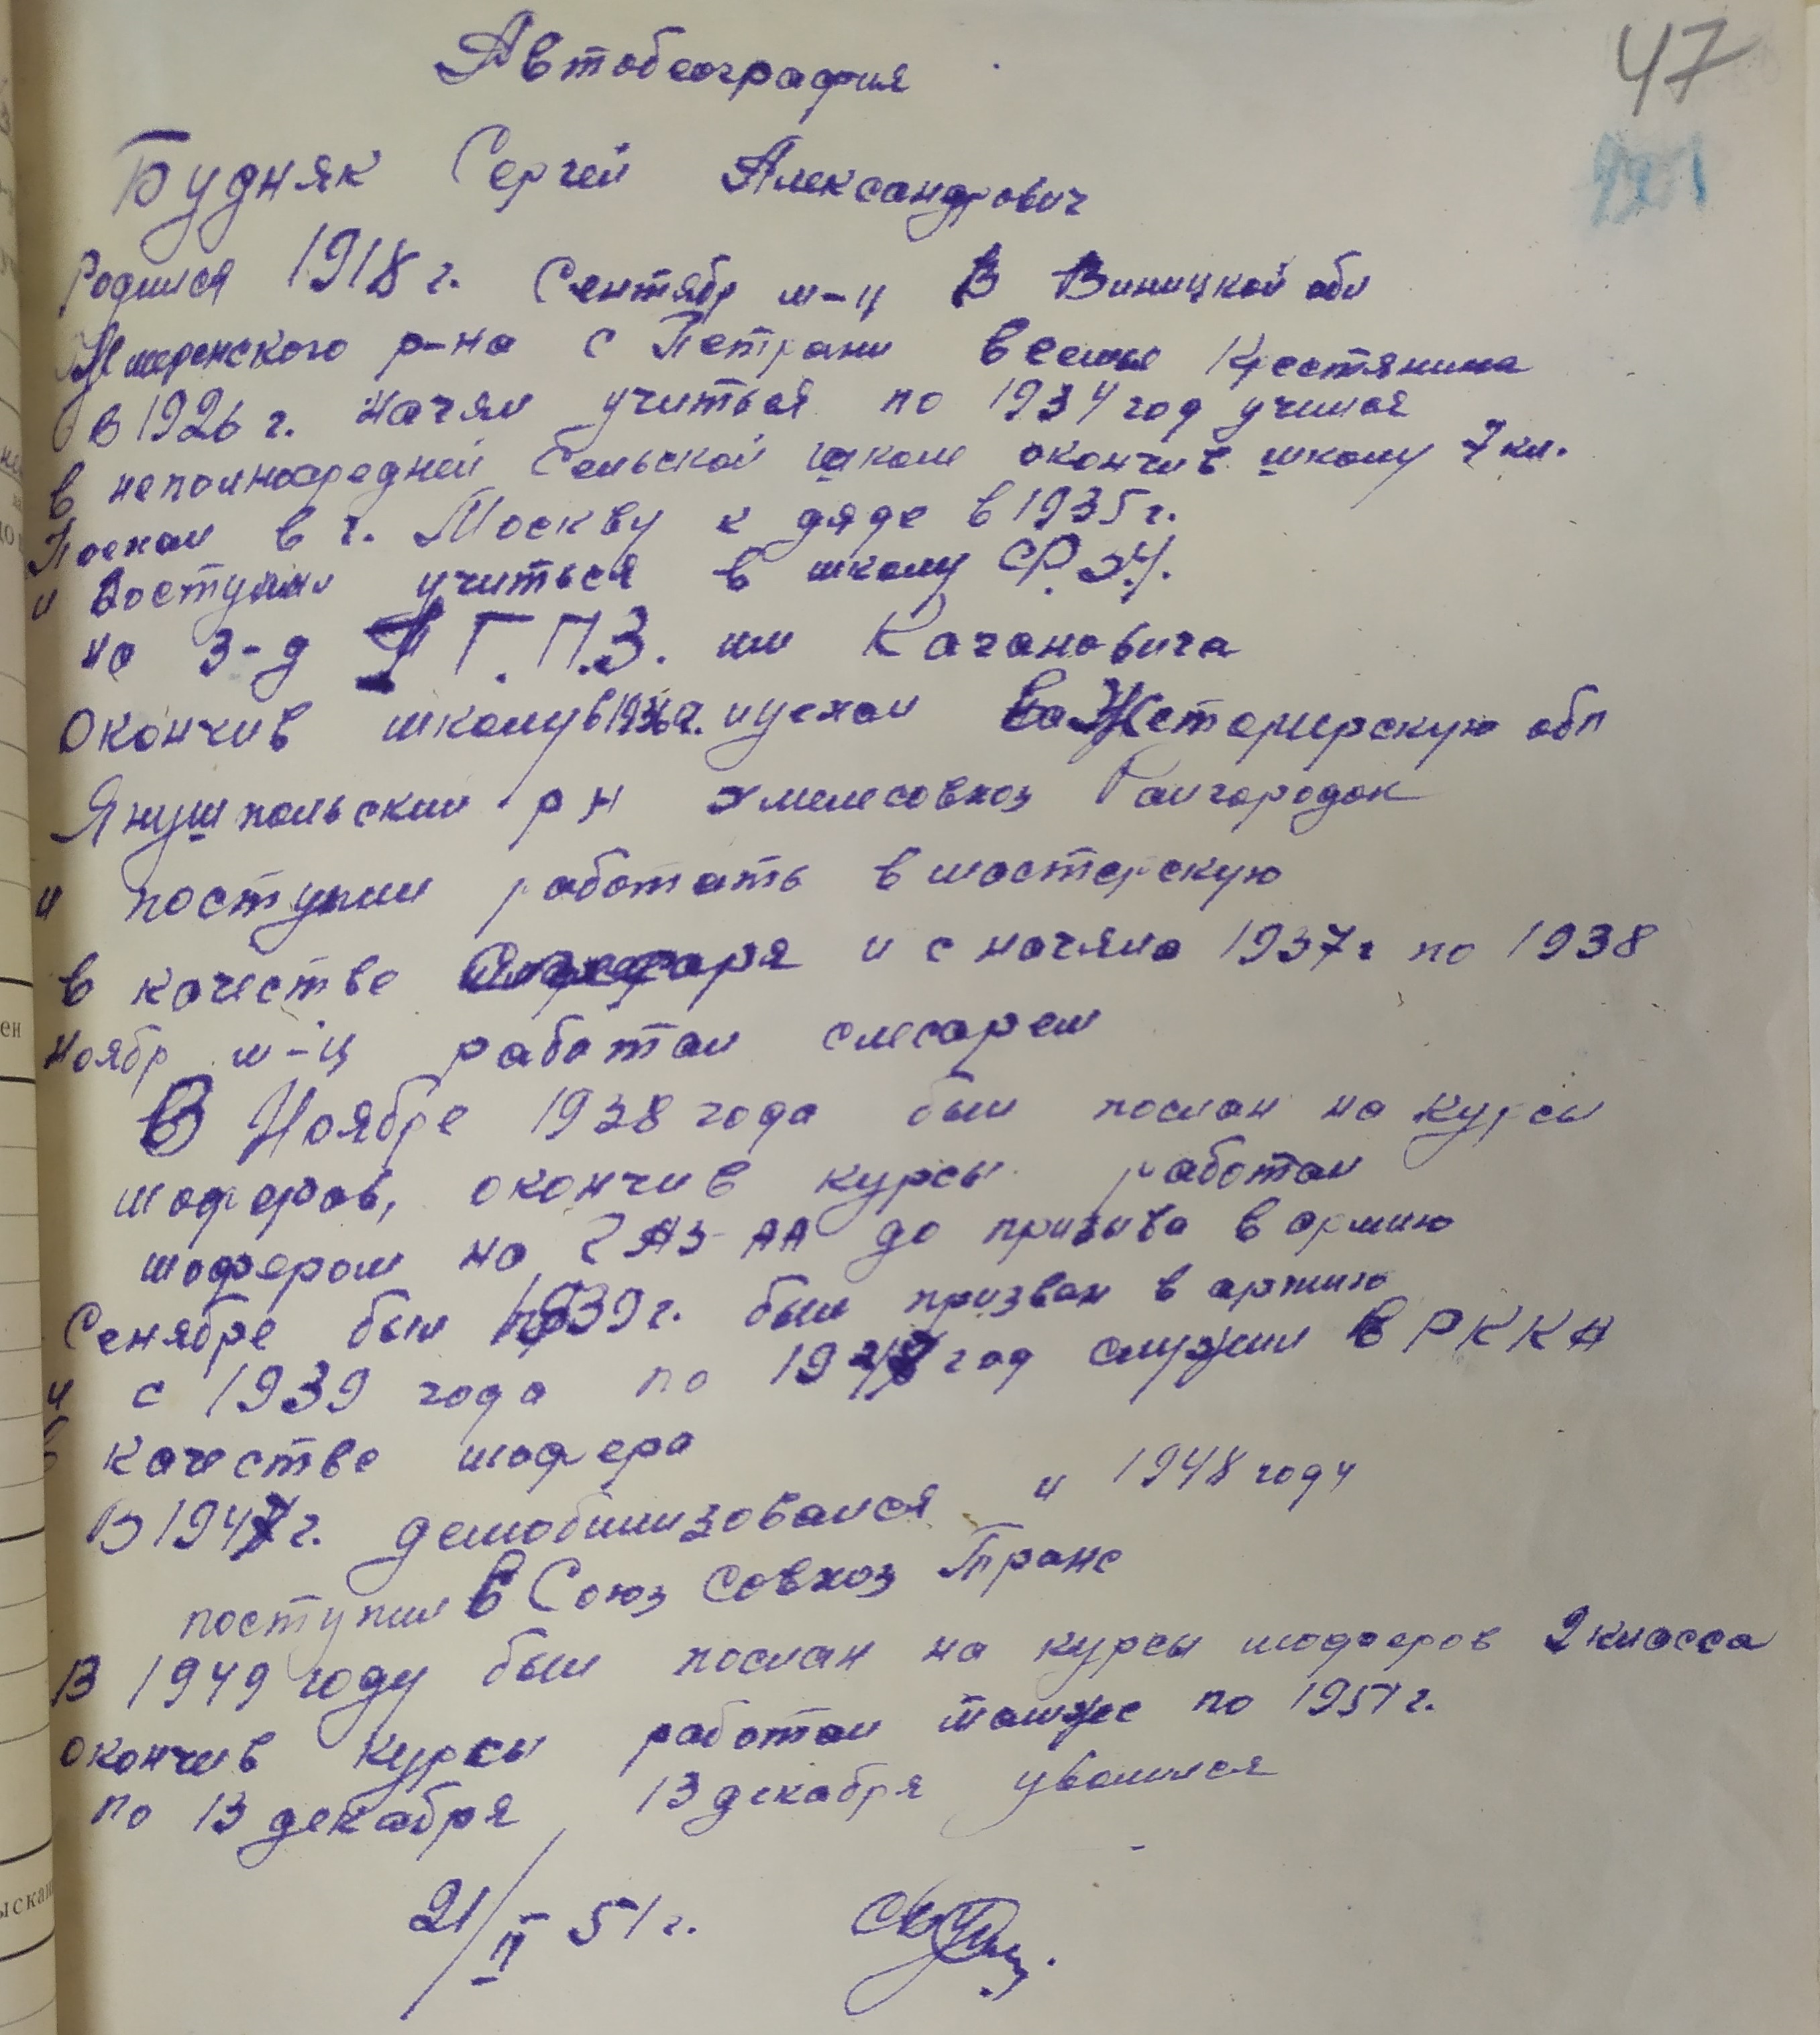 47
Автобеография
Будняк Сергей Александрович
Родился 1918 г. Сентябр м-ц В Виницкой обл
р-на с Петрани в семье Крестянина
в 1926 г. Начял учиться по 1934 год учился
в неполносредней Сельской школе окончив школу 7 кл.
Поехал в г. Москву к дяде в 1935 г.
и Поступил учиться в школу Ф.З.У.
на З-д 1 Г.П.З. им Кагановича
Окончив школу в 1936 г. и уехал в Жетомирскую обл
Янушпольский р н хмелесовхоз Райгородок
и поступил работать в мастерскую
в качестве Слесаря и с начяла 1937 г по 1938
ноябр м-ц работал слесарем
В Ноябре 1938 года был послан на курсы
шоферов, окончив курсы работал
шофером на ГАЗ-АА до призыва в армию
Сенябре был 1939 г. был призван в армию
и с 1939 года по 1947 год служил в РККА
в качестве шофера
В 1947 г. демобилизовался и 1948 году
поступил в Союз Совхоз Транс
В 1949 году был послан на курсы шоферов 2 класса
окончив курсы работал тамже по 1951 г.
по 13 декабря 13 декабря уволился
21/II 51 г.